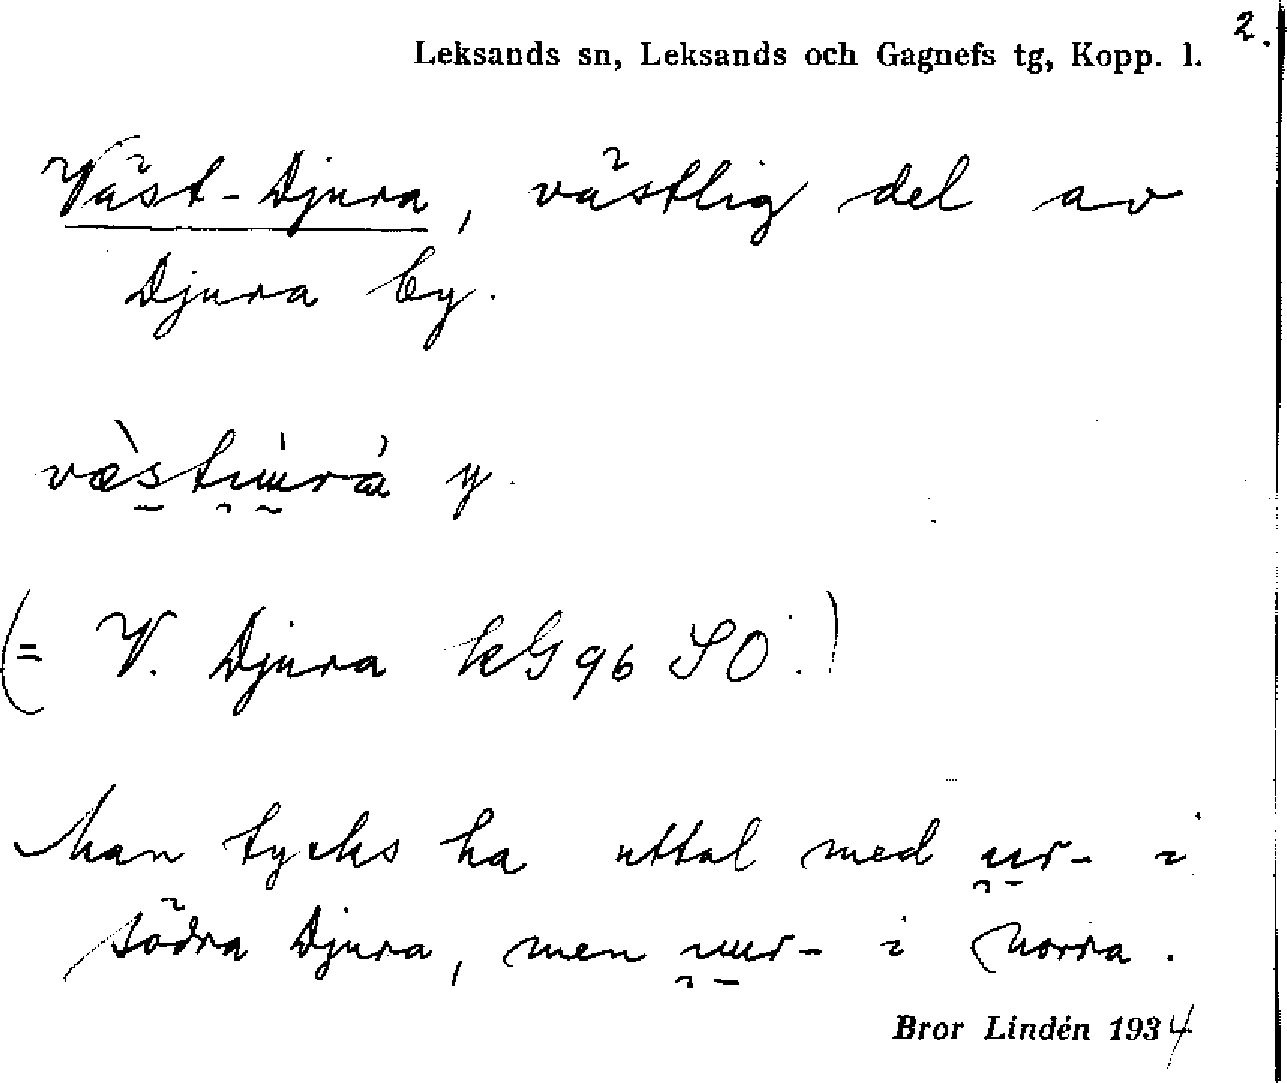 2.
Leksands sn, Leksands och Gagnefs tg, Kopp. l.
Väst-Djura, västlig del av
Djura by.
(= V. Djura kG96 SO.)
Man tycks ha uttal med ur- i
södra Djura, men uur- i Norra.
Bror Lindén 1934